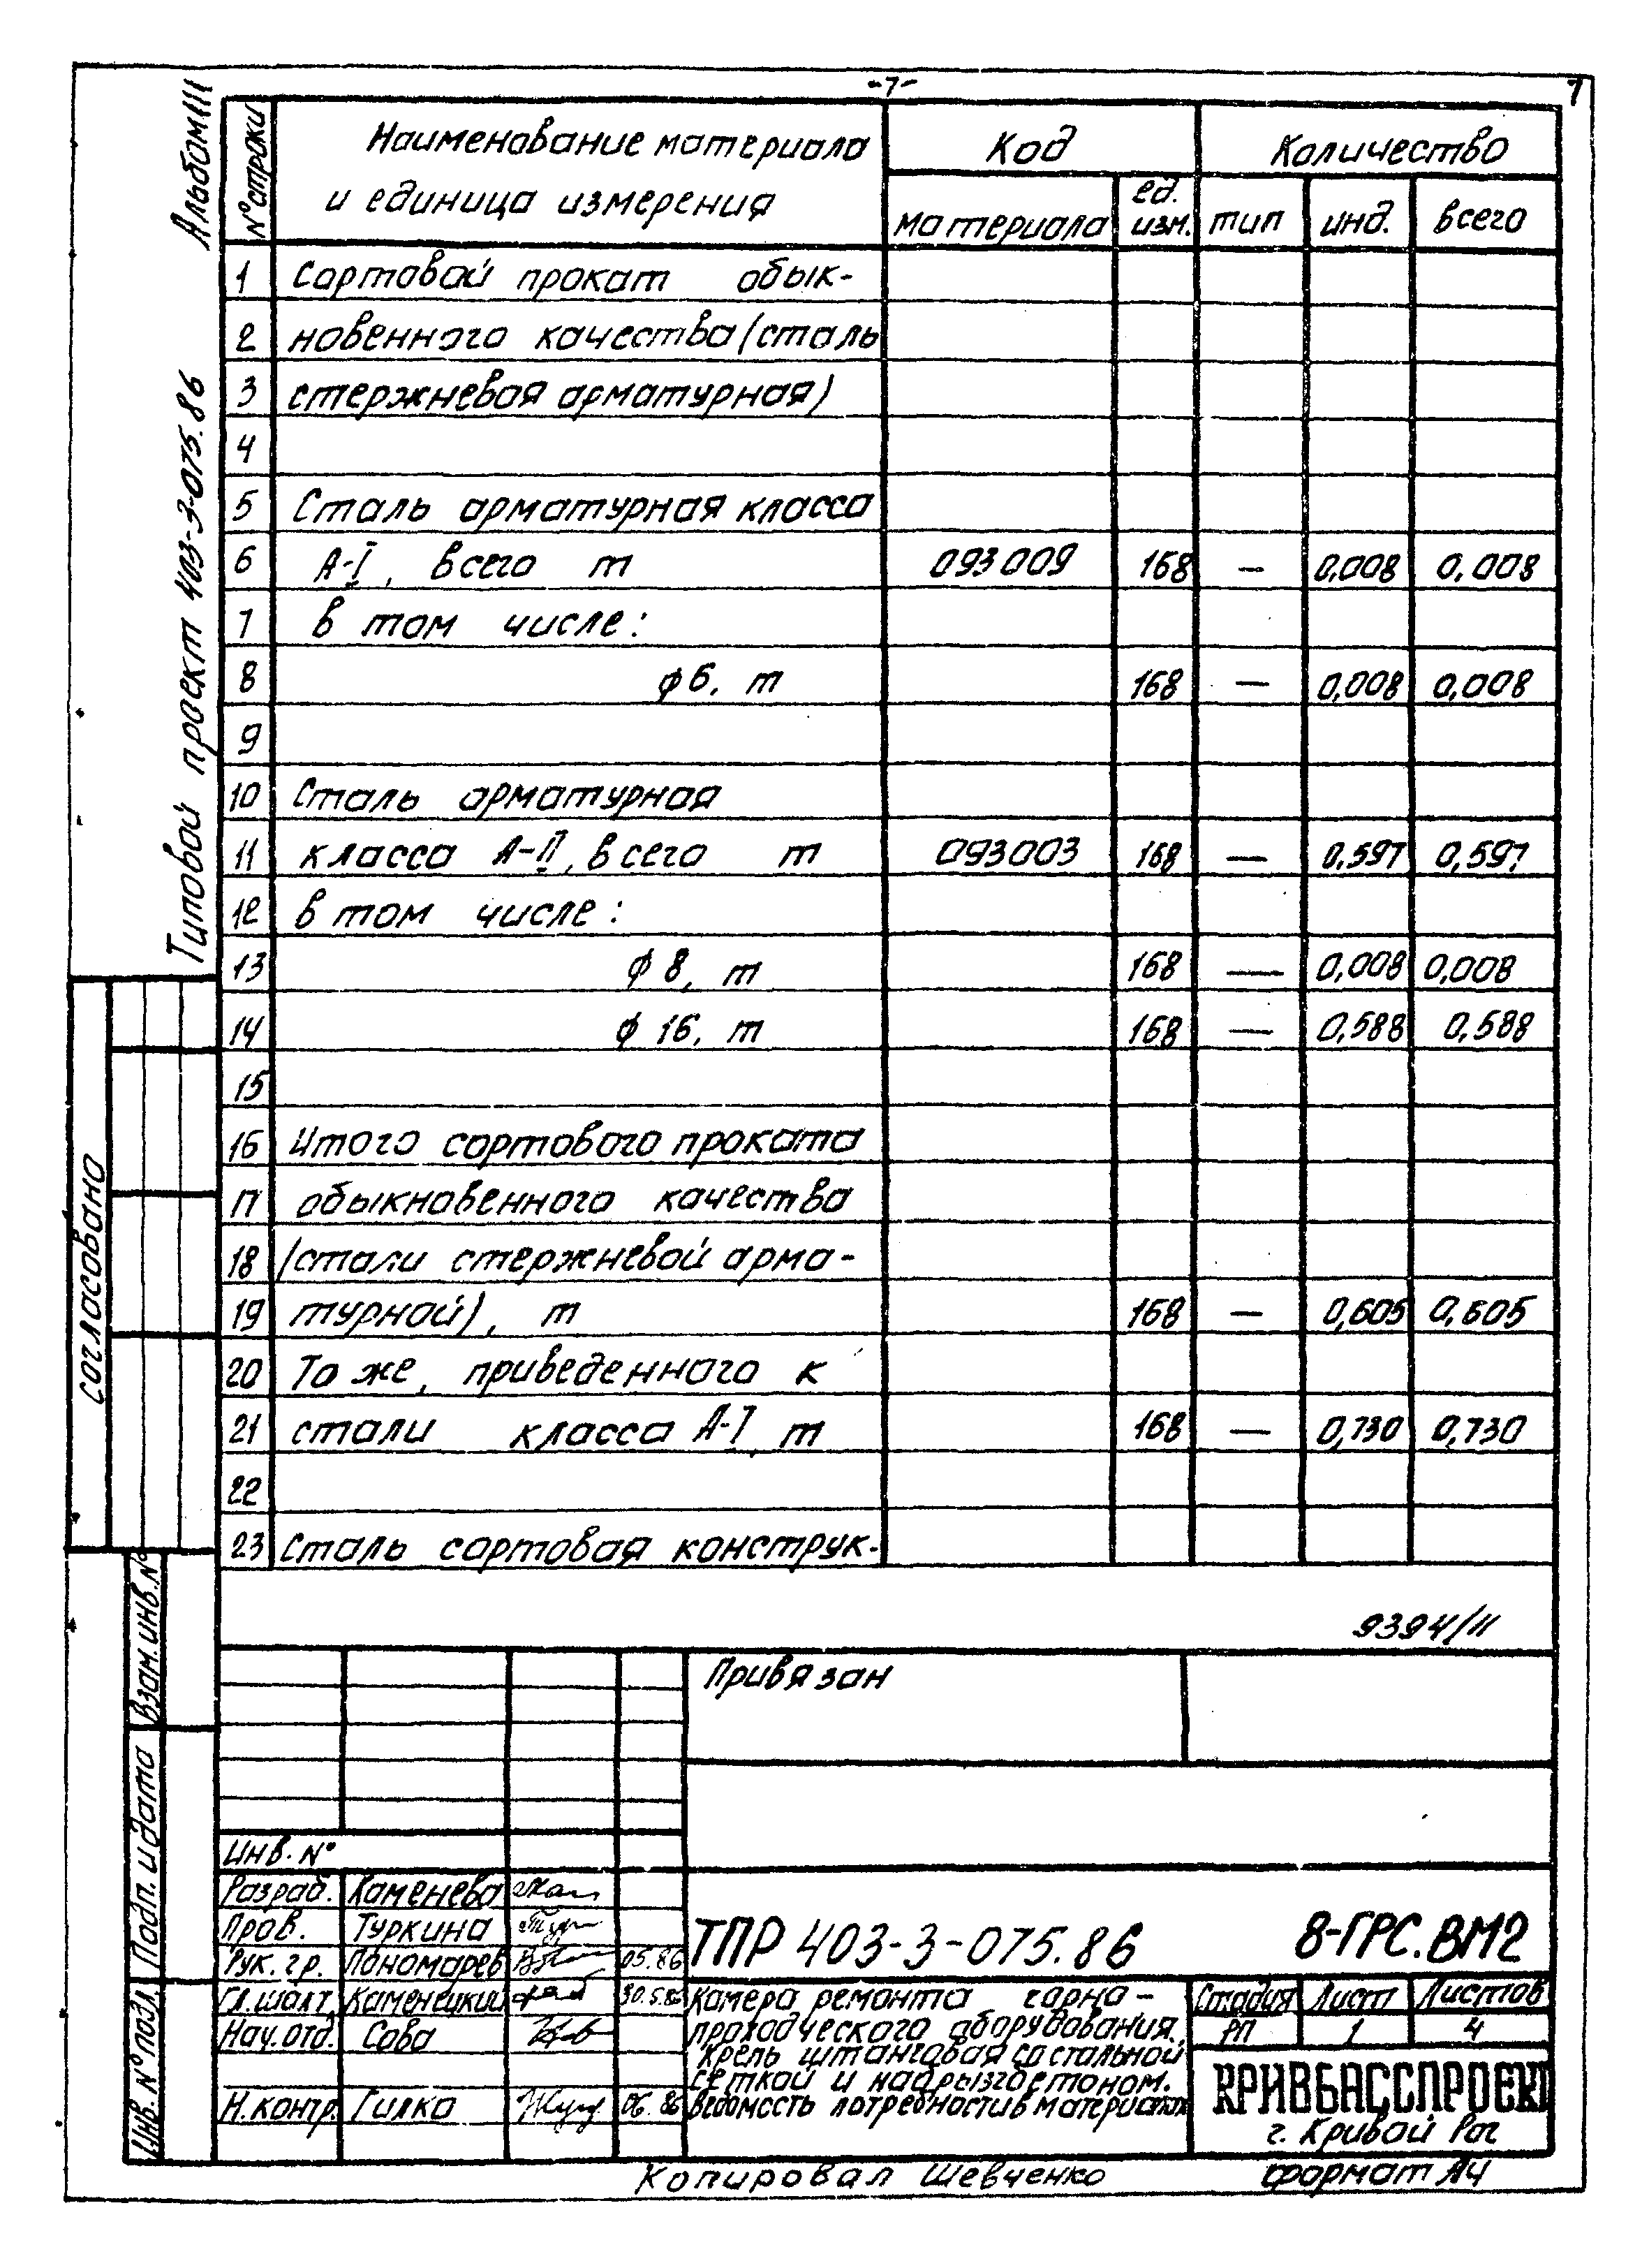 -7-
7
Альбом III
Типовой проект 403-3-075.86
№ строки
Наименование материала
и единица измерения
Код
Количество
материала
ед. изм.
тип
инд.
всего
1 Сортовой прокат обык-
2 новенного качества (сталь
3 стержневая арматурная)
4
5 Сталь арматурная класса
6 А-I, всего т 093009 168 — 0,008 0,008
7 в том числе:
8 ϕ6, т 168 — 0,008 0,008
9
10 Сталь арматурная
11 класса А-II, всего т 093003 168 — 0,597 0,597
12 в том числе:
13 ϕ 8, т 168 — 0,008 0,008
14 ϕ 16, т 168 — 0,588 0,588
15
16 Итого сортового проката
17 обыкновенного качества
18 (стали стержневой арма-
19 турной), т 168 — 0,605 0,605
20 То же, приведенного к
21 стали класса А-I, т 168 — 0,730 0,730
22
23 Сталь сортовая конструк-
9394/11
согласовано
Взам. инв. №
Подп. и дата
Инв. № подл.
Привязан
Инв. №
Разраб. Каменева
Пров. Туркина
Рук. гр. Пономарев 05.86
Гл. шахт. Каменецкий 30.5.86
Нач. отд. Сова
Н. контр. Гилка 06.86
ТПР 403-3-075.86 8-ГРС.ВМ2
Камера ремонта горно-
проходческого оборудования.
Крепь штанговая со стальной
сеткой и набрызгбетоном.
Ведомость потребности в материалах
Стадия Лист Листов
РП 1 4
КРИВБАССПРОЕКТ
г. Кривой Рог
Копировал Шевченко
формат А4